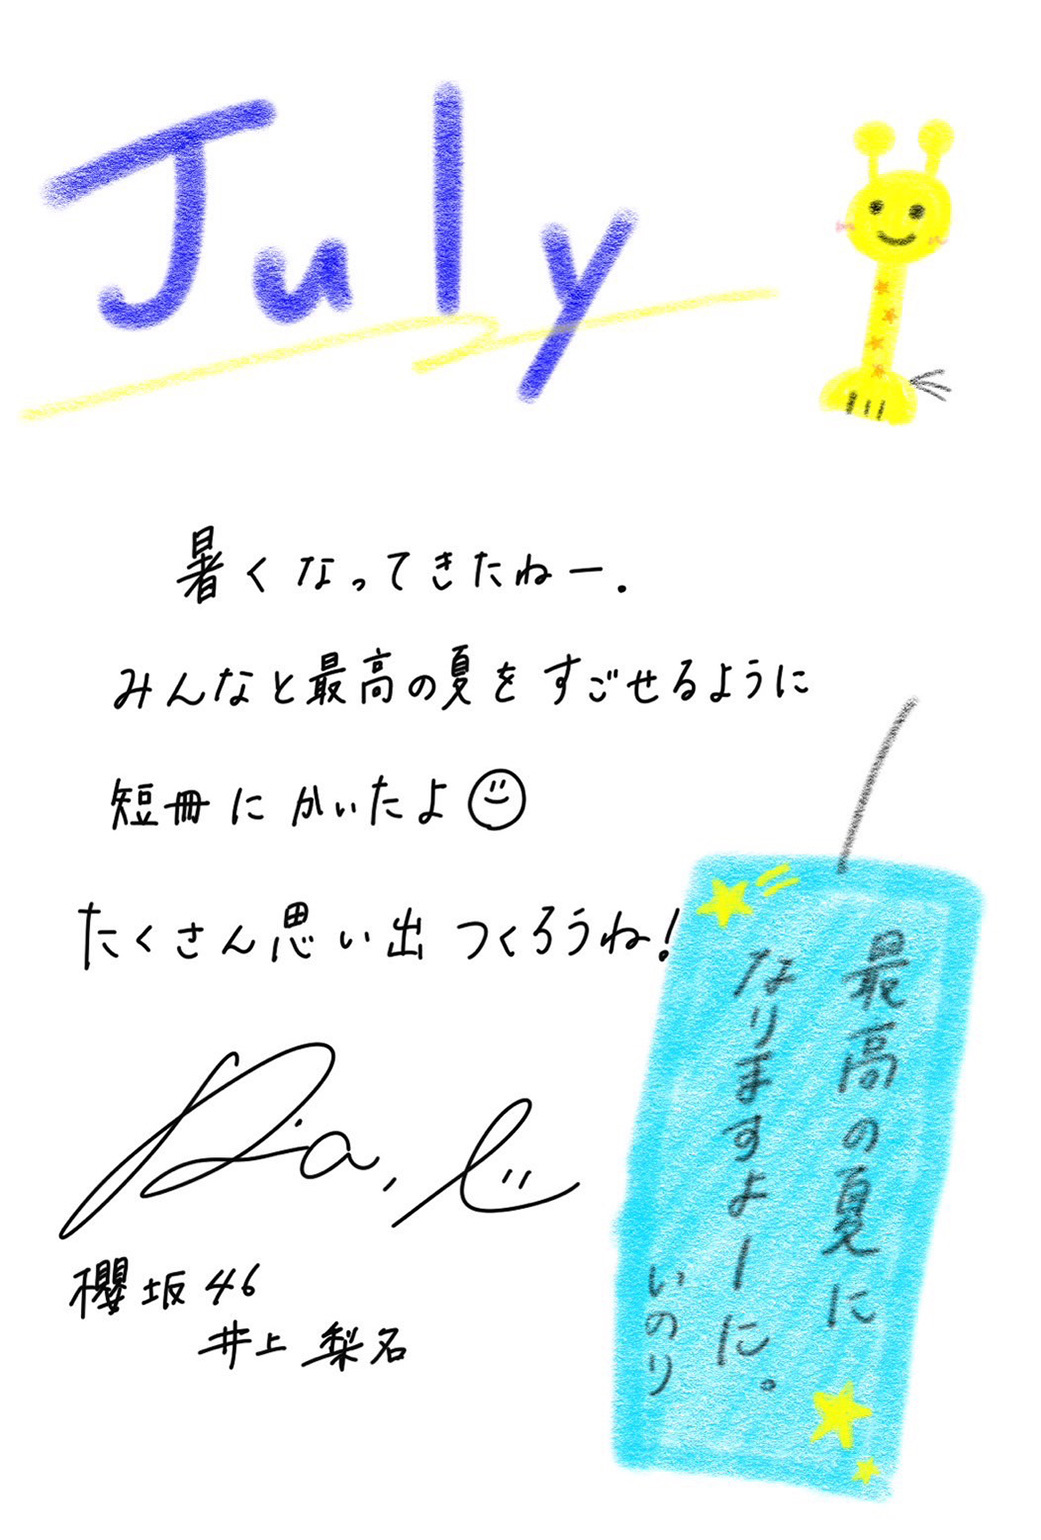 July
暑くなってきたねー.
みんなと最高の夏をすごせるように
短冊にかいたよ
たくさん思い出つくろうね!
最高の夏に
なりますよーに。
いのり
Ria,
櫻坂46
井上梨名